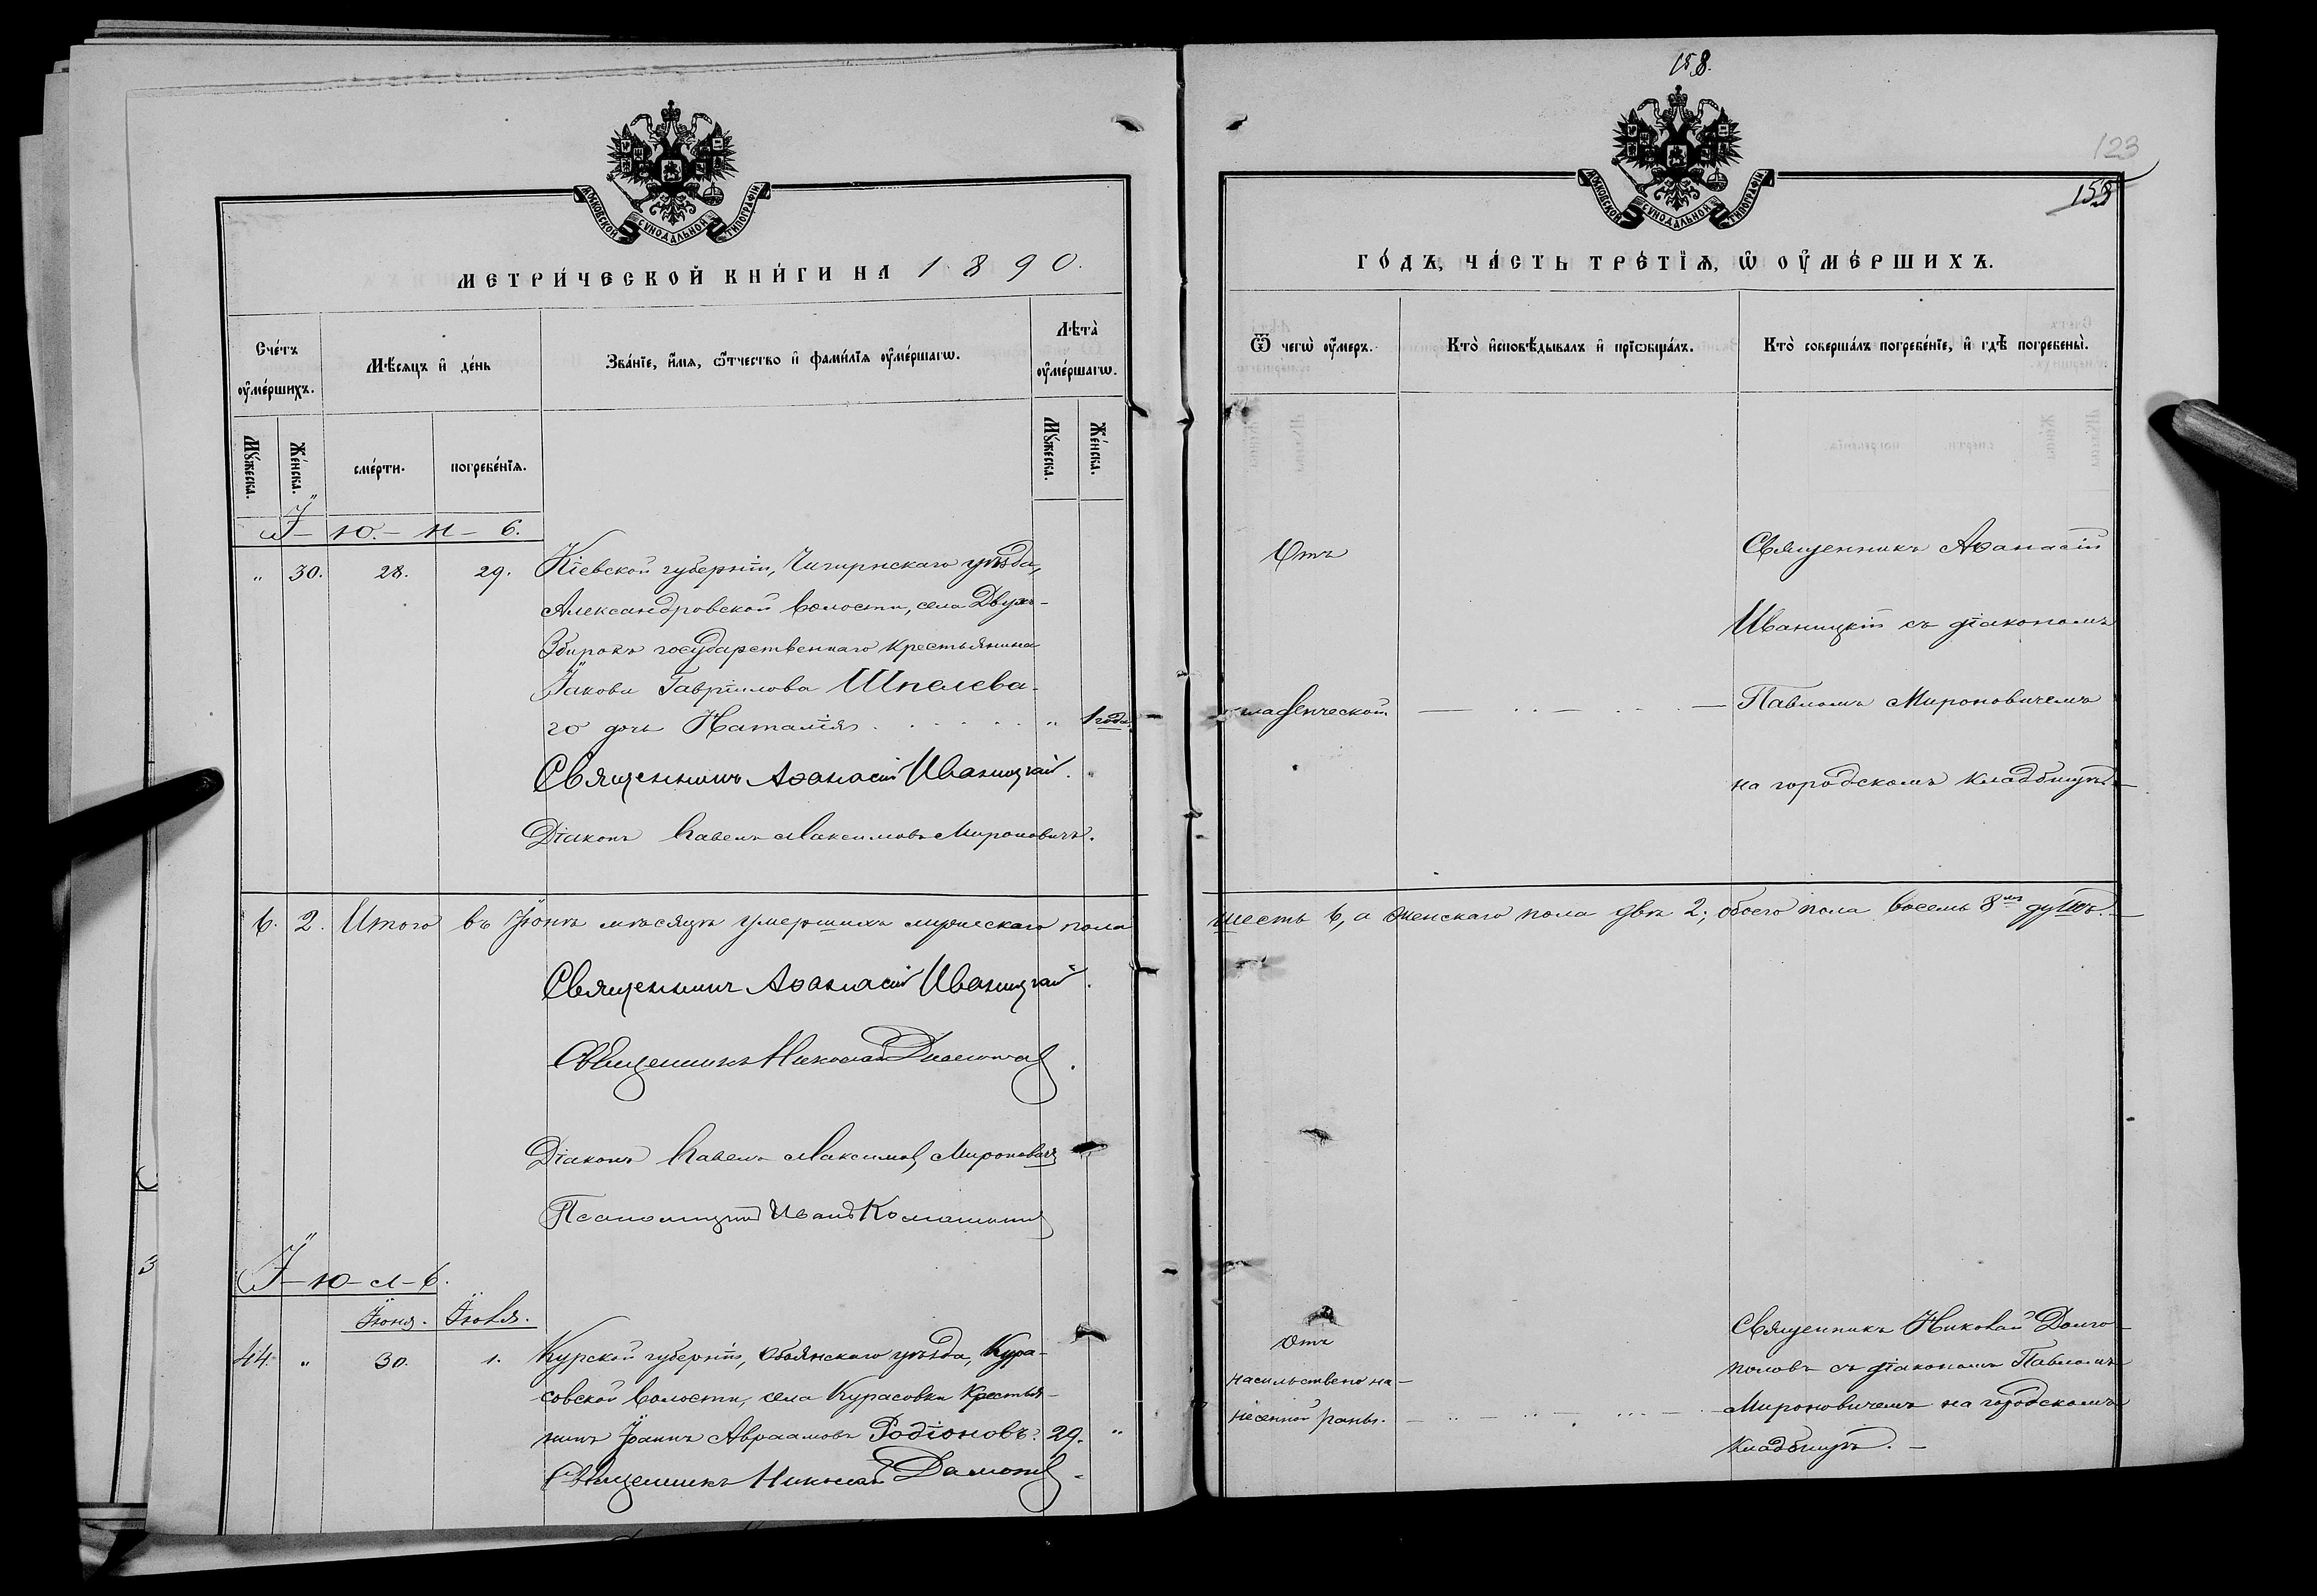 МОСКОВСКОЙ СѴНОДАЛЬНОЙ ТИПОГРАФІИ
МЕТРИ́ЧЕСКОЙ КНИ́ГИ НА 1890.
Сче́тъ оу҆ме́ршихъ.
Мѣ́сяцъ и҆ де́нь
Зва́нїе, и҆́мя, ѻ҆́тчество и҆ фами́лїя оу҆ме́ршагѡ.
Лѣта̀ оу҆ме́ршагѡ.
Мꙋ́жеска.
Же́нска.
сме́рти.
погребе́нїѧ.
Мꙋ́жеска.
Же́нска.
І-ю.-н-ь.
" 30. 28. 29. Кіевской губерніи, Чигиринскаго уѣзда,
Александровской волости, села Двухъ-
Збирокъ государственнаго крестьянина
Іакова Гавріилова Шпелева-
го дочь Наталія . . . . . " 1 года.
Священникъ Аѳанасій Иваницкій.
Діаконъ Павелъ Максимовъ Мироновичъ.
6. 2. Итого въ Іюнѣ мѣсяцѣ умершихъ мужескаго пола
Священникъ Аѳанасій Иваницкій.
Священникъ Николай Долгополов.
Діаконъ Павелъ Максимов Мироновичъ
Псаломщикъ Иванъ
І-ю-л-ь.
Іюня. Іюля.
44. " 30. 1. Курской губерніи, Обоянскаго уѣзда, Кура-
совской волости, села Курасовки крестья-
нинъ Іоаннъ Авраамовъ Родіоновъ. 29. "
Священникъ Николай Долгополов
158.
123
153
МОСКОВСКОЙ СѴНОДАЛЬНОЙ ТИПОГРАФІИ
ГО́ДЪ, ЧА́СТЬ ТРЕ́ТЇѦ, Ѡ҆ ОУ҆МЕ́РШИХЪ.
Ѿ чегѡ̀ оу҆́меръ.
Кто̀ и҆сповѣ́дывалъ и҆ прїѡбща́лъ.
Кто̀ соверша́лъ погребе́нїе, и҆ гдѣ̀ погребены̀.
Отъ
младенческой.
Священникъ Аѳанасій
Иваницкій съ діакономъ
Павломъ Мироновичемъ
на городскомъ кладбищѣ.
шесть 6, а женскаго пола двѣ 2; обоего пола восемь 8мь душъ.
Отъ
насильствено на-
несенной раны.
Священникъ Николай Долго-
половъ съ діакономъ Павломъ
Мироновичемъ на городскомъ
кладбищѣ.